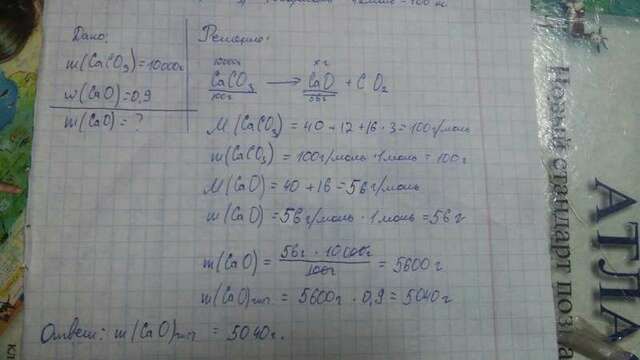 Дано:
m(CaCO3)=10000г
w(CaO)=0,9
m(CaO)=?
Решение:
10000г xг
CaCO3 → CaO + CO2
100г 56г
M(CaCO3) = 40+12+16·3=100г/моль
m(CaCO3) = 100г/моль·1моль=100г
M(CaO)=40+16=56г/моль
m(CaO)=56г/моль·1моль=56г
m(CaO) = 56г·10000г / 100г = 5600г
m(CaO) = 5600г·0,9=5040г
Ответ: m(CaO) = 5040г.
Новый стандарт
АТЛА